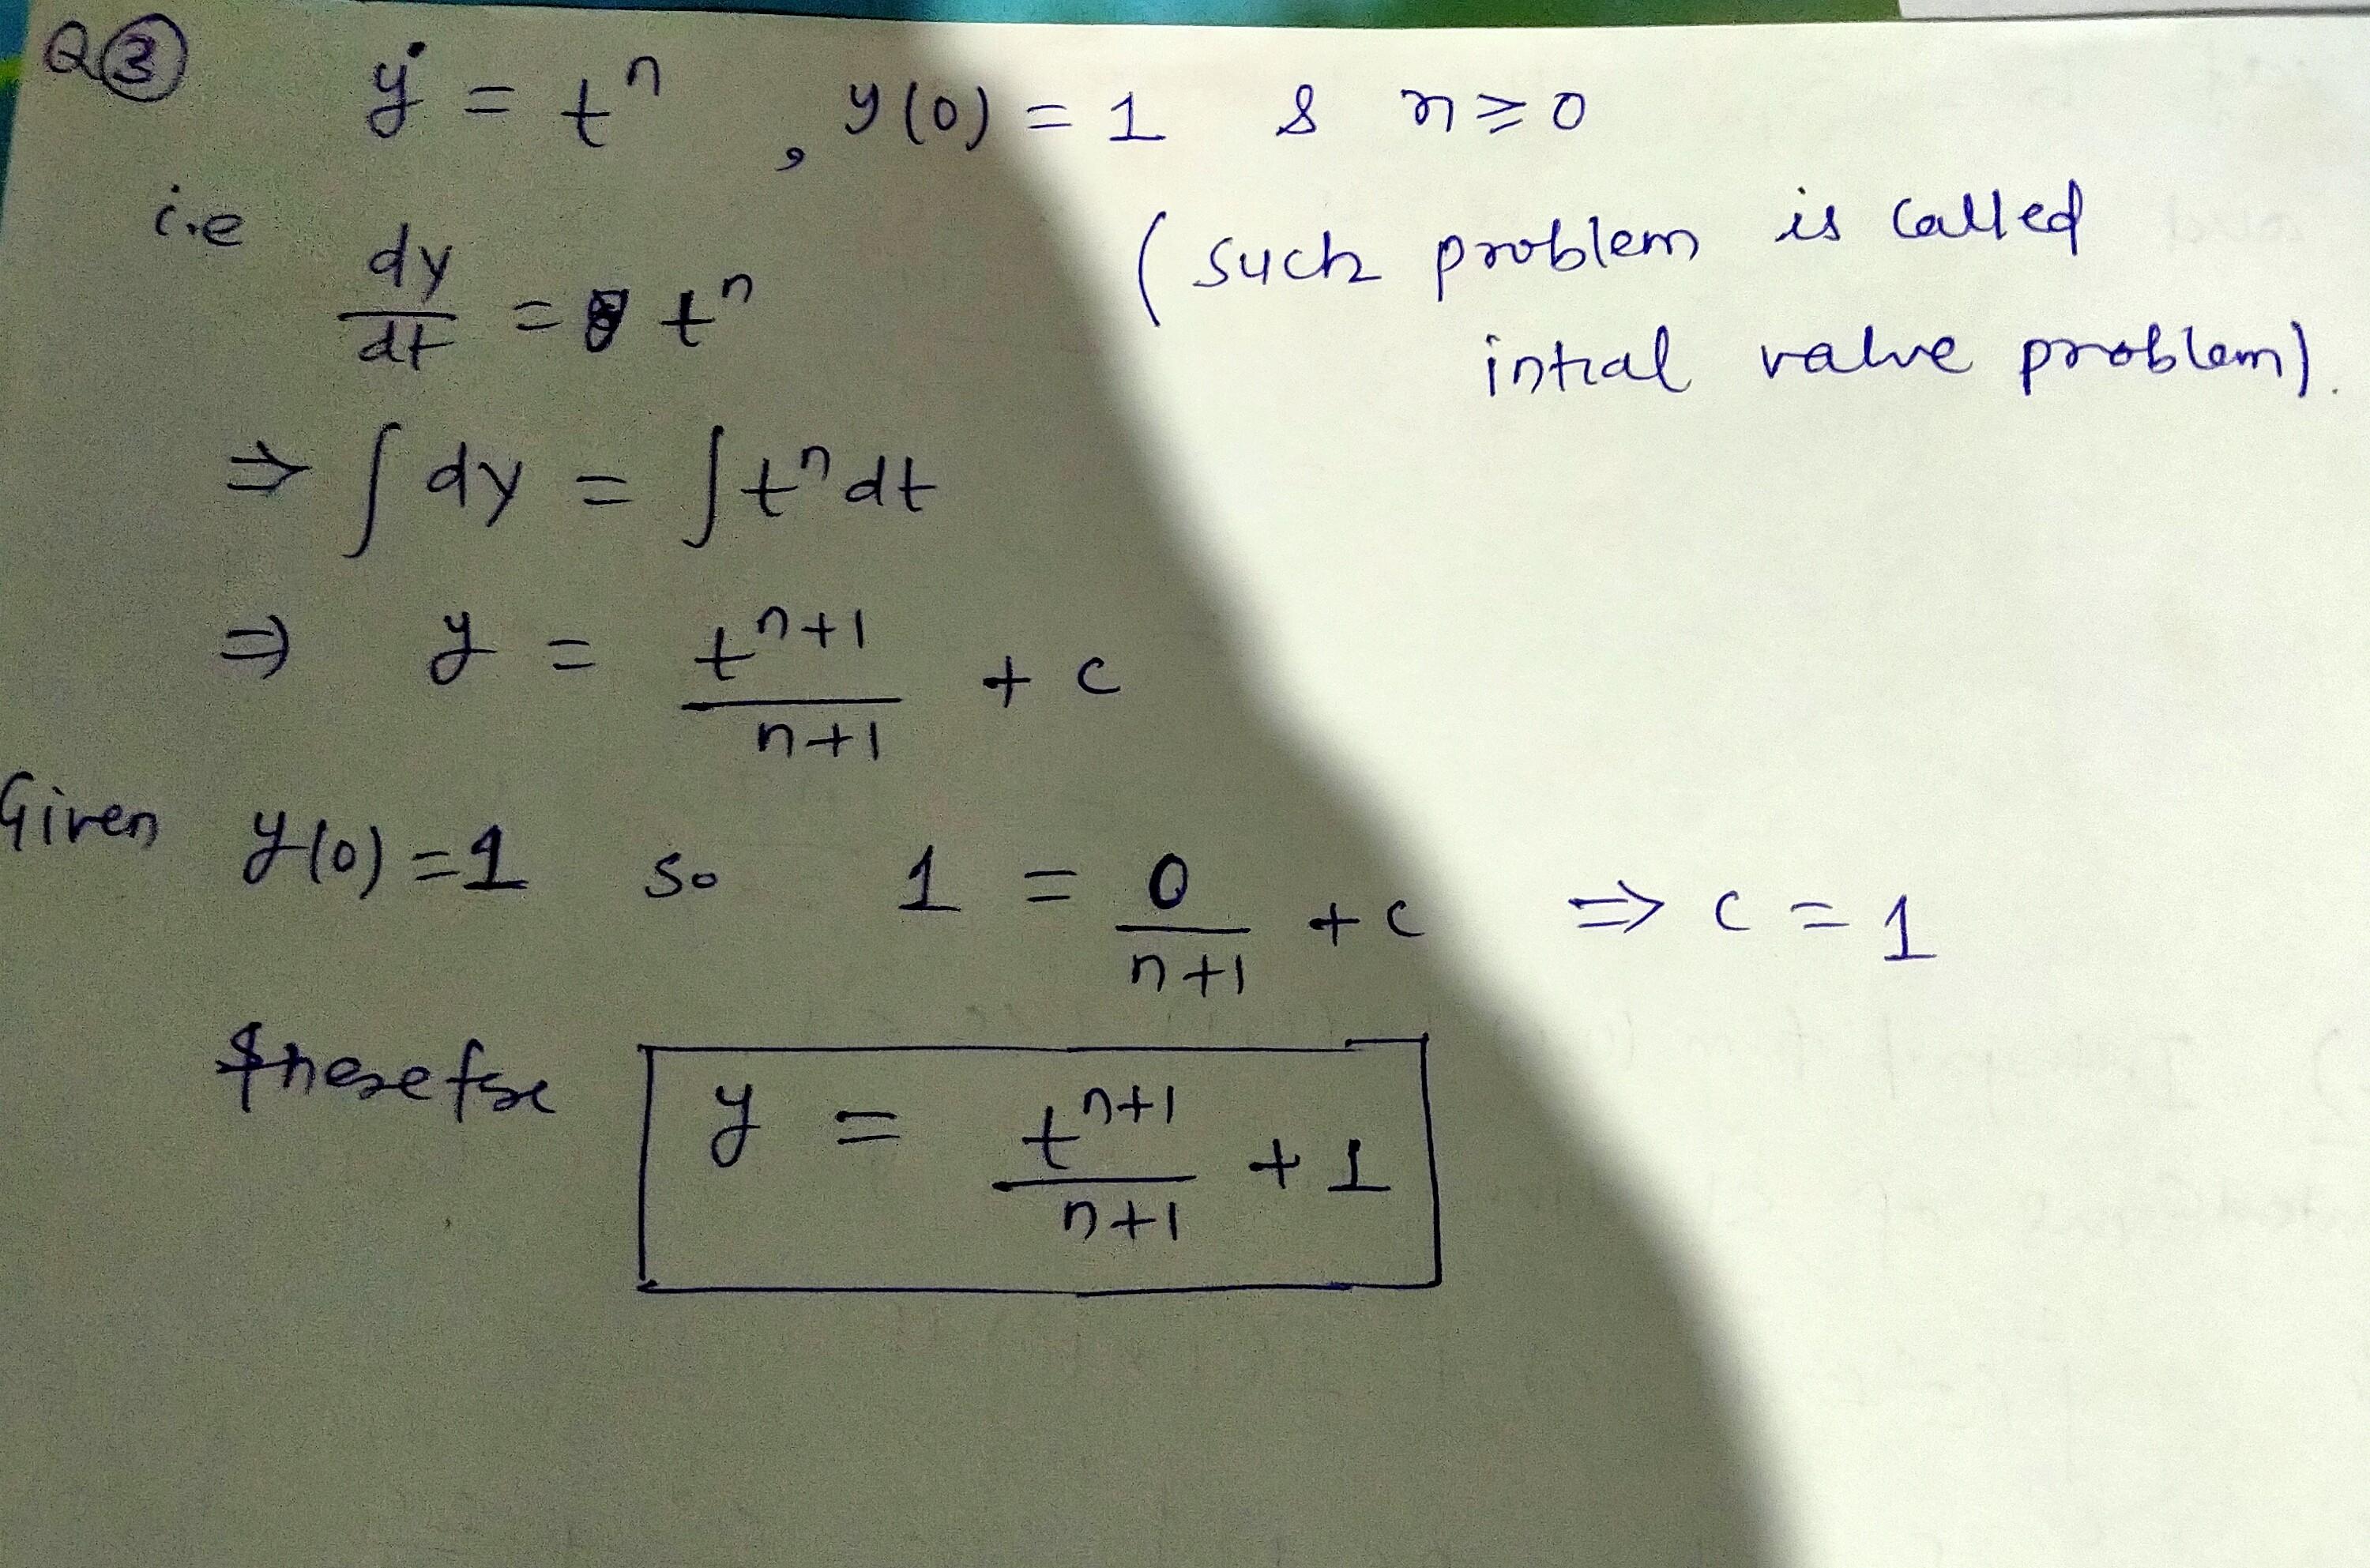 Q③ ẏ = tⁿ , y(0) = 1 & n ≥ 0
i.e dy/dt = tⁿ (such problem is called
intial value problem).
⇒ ∫ dy = ∫ tⁿ dt
⇒ y = tⁿ⁺¹/n+1 + c
Given y(0) = 1 so 1 = 0/n+1 + c ⇒ c = 1
therefore y = tⁿ⁺¹/n+1 + 1